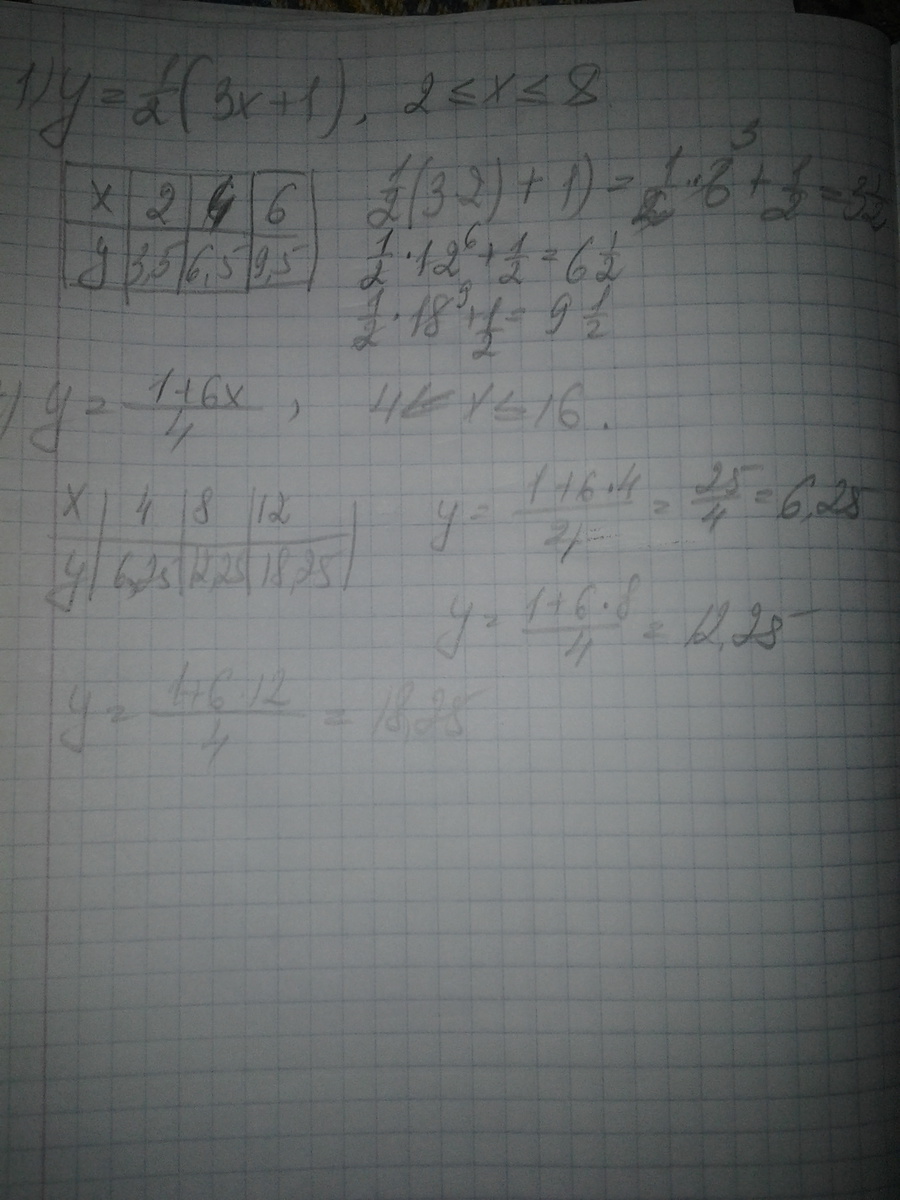 1) y = 1/2 (3x+1), 2 ≤ x ≤ 8
x 2 4 6
y 3,5 6,5 9,5
1/2 (3·2) + 1) = 1/2 · 6 3 + 1/2 = 3 1/2
1/2 · 12 6 + 1/2 = 6 1/2
1/2 · 18 9 + 1/2 = 9 1/2
) y = 1+6x/4, 4 ≤ x ≤ 16.
x 4 8 12
y 6,25 12,25 18,25
y = 1+6·4/4 = 25/4 = 6,25
y = 1+6·8/4 = 12,25
y = 1+6·12/4 = 18,25